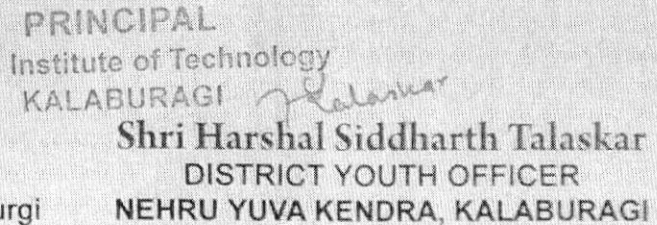 PRINCIPAL
Institute of Technology
KALABURAGI
Talaskar
Shri Harshal Siddharth Talaskar
DISTRICT YOUTH OFFICER
urgi NEHRU YUVA KENDRA, KALABURAGI